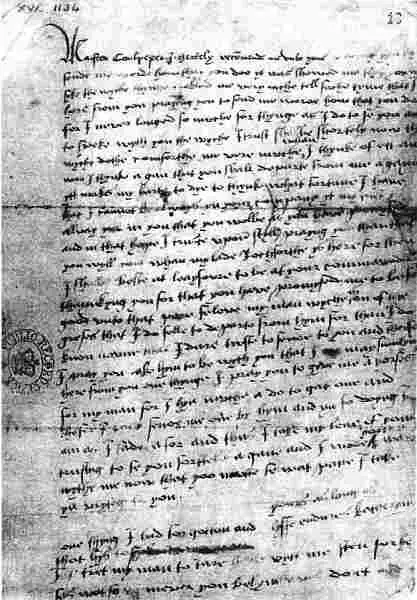 XVI. 1134
13
Master Coulpeper I hertely recomende me unto youe praying you to
sende me worde how that you doo it was showed me that you was
sike the wyche thynge troubled me very muche tell suche tyme that I
here from you praying you to send me worde how that you do
for I never longed so muche for thynge as I do to se you and
to speke wyth you the wyche I trust shal be shortely now the
wyche dothe comforthe me verie muche whan I thynke of ett and
wan I thynke agan that you shall departe from me agayne
ytt makes my harte to dye to thynke what fortune I have
that I cannot be always yn your company yt my trust ys
allway in you that you wolbe as you have promysed me
and in that hope I truste upon styll praying you than that
you wyll com whan my lade Rochforthe ys here for then
I shalbe beste at leaysoure to be at your commarendmant
thaynkyng you for that you have promysed me to be so
good unto that pore felowe my man wyche is on of the
grefes that I do felle to departe from hym for than I do
know noone that I dare truste to sende to you and therfor
I pray you take hym to be wyth you that I may sumtym
here from you one thynge I pray you to gyve me a horse
for my man for I hyd muche a do to gat one and
therfor I pray sende me one by hym and yn so doying I
am as I sade afor and thus I take my leve of you
trusting to se you shorttele agane and I wode you was
wythe me now that yoo maitte se wat pane I take
yn wryting to you
yours as long as
lyffe endures Katheryn
one thyng I had forgotten and
that hys to
instruct my man to tare here wyt me still for he
sas wat so mever you bed hym he wel do et